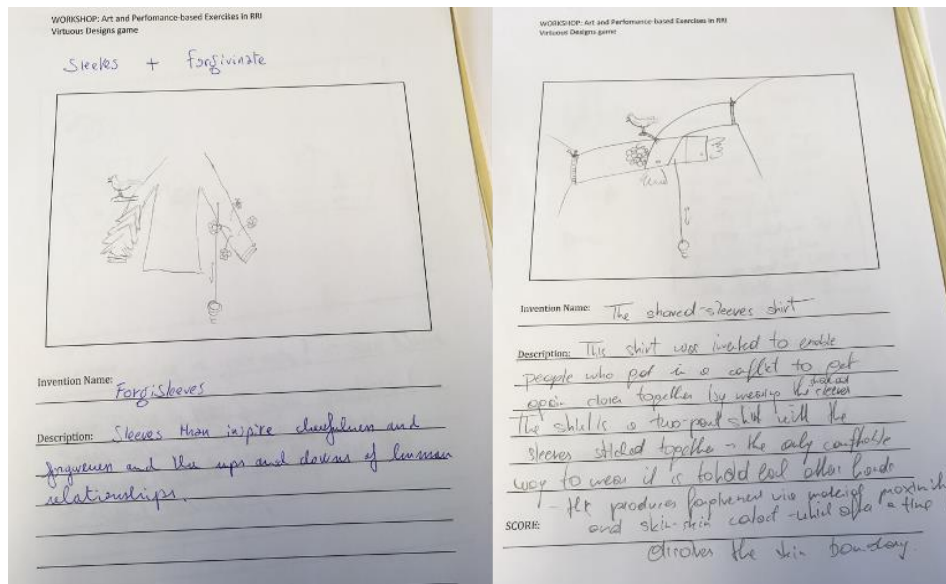 WORKSHOP: Art and Perfomance-based Exercises in RRI
Virtuous Designs game
Sleeves + forgivinate
Invention Name: Forgisleeves
Description: Sleeves than inspire cheefulness and
forgiveness and the ups and downs of human
relationships.
WORKSHOP: Art and Perfomance-based Exercises in RRI
Virtuous Designs game
Invention Name: The shared-sleeves shirt
Description: This shirt was invented to enable
people who got in a conflict to get
again closer together by wearing the
The shirt is a two-part shirt with the
sleeves together - the only
way to wear it is to hold each other hands
- produces forgiveness via making proximity
SCORE: and skin-skin contact - which after a time
dissolves the skin boundary.